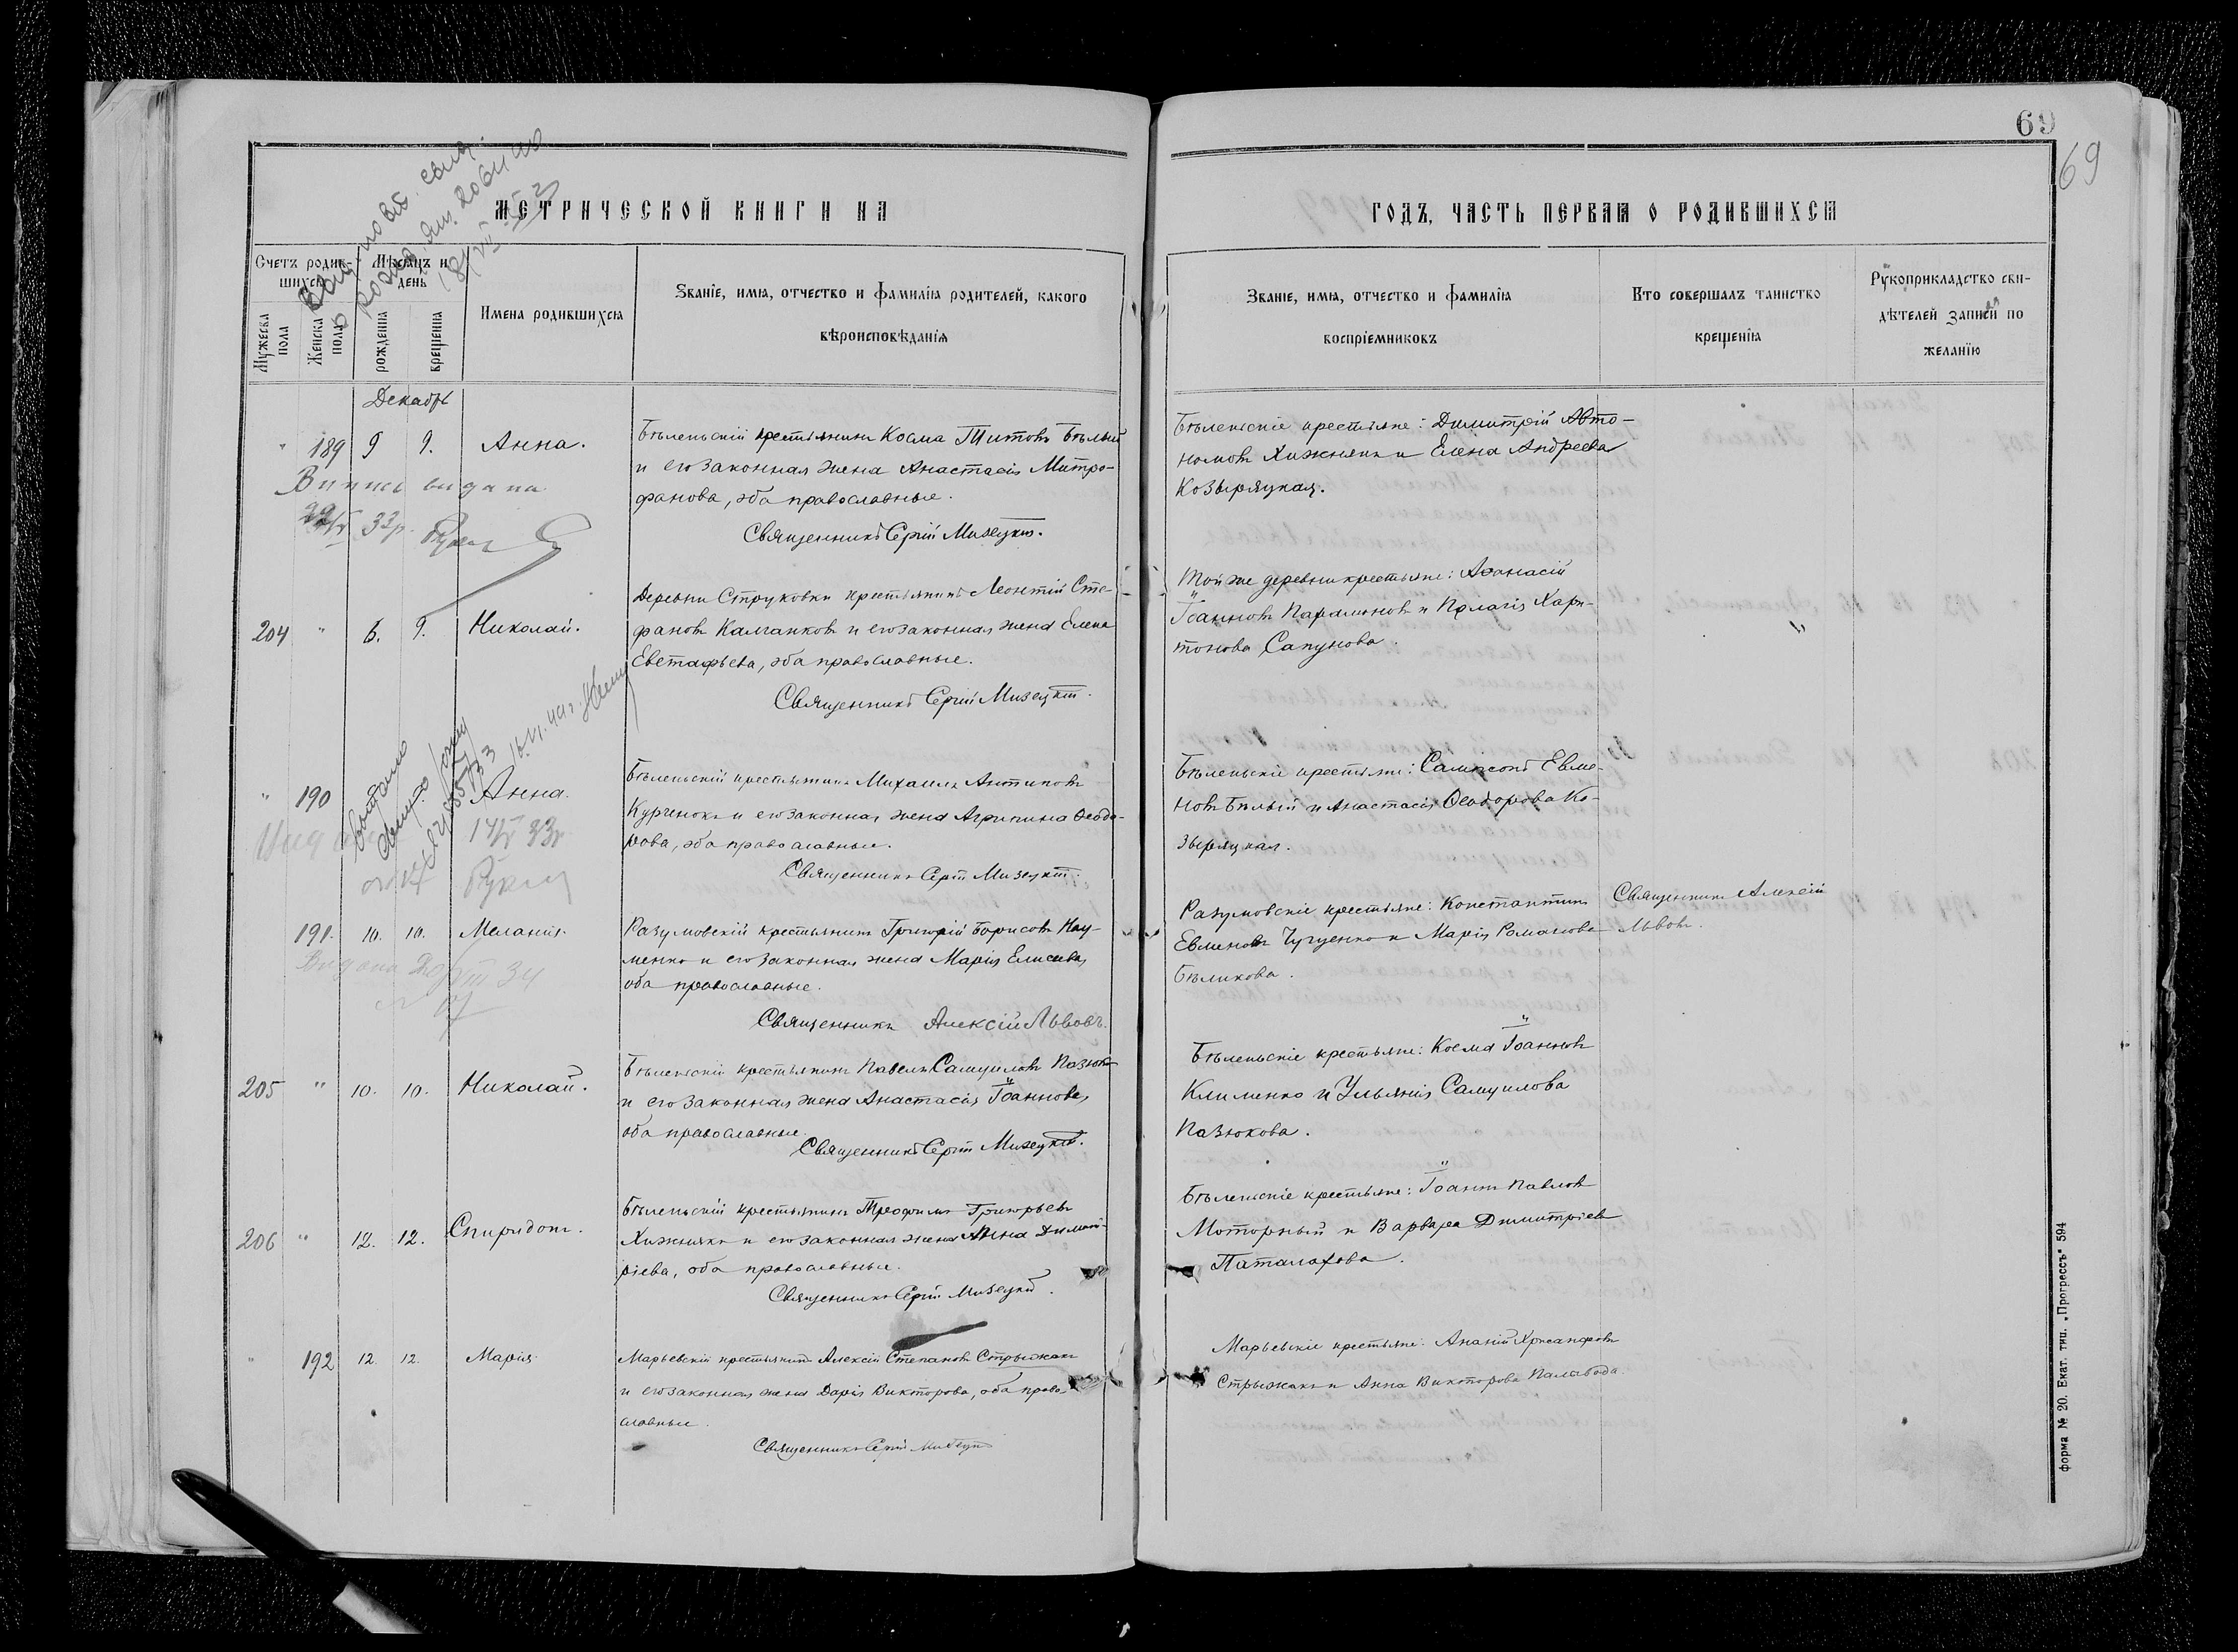 69
69
МЕТРИЧЕСКОЙ КНИГИ НА
ГОДЪ, ЧАСТЬ ПЕРВАЯ О РОДИВШИХСЯ
Счетъ родив-
шихся
Мѣсяцъ и
день
Мужеска
пола
Женска
пола
рожденія
крещенія
Имена родившихся
Званіе, имя, отчество и фамилія родителей, какого
вѣроисповѣданія
Званіе, имя, отчество и фамилія
воспріемниковъ
Кто совершалъ таинство
крещенія
Рукоприкладство сви-
дѣтелей записи по
желанію
Декабрь
" 189 9 9. Анна.
Бѣленьскій крестьянинъ Косма Титовъ Бѣлый
и его законная жена Анастасія Митро-
фанова, оба православные.
Священникъ Сергій Мизецкій.
Бѣленьскіе крестьяне: Димитрій Авто-
номовъ Хижнякъ и Елена Андреева
Козыряцкая.
Випись видана
33р.
204 " 6. 9. Николай.
Деревни Струковки крестьянинъ Леонтій Сте-
фановъ Калчанковъ и его законная жена Елена
Евстафьева, оба православные.
Священникъ Сергій Мизецкій.
Той же деревни крестьяне: Аѳанасій
Іоанновъ Парамоновъ и Пелагія Хари-
тонова Сапунова.
" 190 Анна.
Бѣленьскій крестьянинъ Михаилъ Антиповъ
Курченко и его законная жена Агрипина Ѳеодо-
рова, оба православные.
Священникъ Сергій Мизецкій.
Бѣленьскіе крестьяне: Сампсонъ Евме-
новъ Бѣлый и Анастасія Ѳеодорова Ко-
зыряцкая.
191. 10. 10. Меланія.
Разумовскій крестьянинъ Григорій Борисовъ Нау-
менко и его законная жена Марія Елисеева,
оба православные.
Священникъ Алексій Львовъ.
Разумовскіе крестьяне: Константинъ
Евменовъ Чугуенко и Марія Романова
Бѣликова.
Священникъ Алексій
Львовъ.
Видана
34
205 " 10. 10. Николай.
Бѣленьскій крестьянинъ Павелъ Самуиловъ Пазюкъ
и его законная жена Анастасія Іоаннова,
оба православные.
Священникъ Сергій Мизецкій.
Бѣленьскіе крестьяне: Косма Іоанновъ
Клименко и Ульянія Самуилова
Пазюкова.
206 " 12. 12. Спиридонъ.
Бѣленьскій крестьянинъ Трофимъ Григорьевъ
Хижнякъ и его законная жена Анна Димит-
ріева, оба православные.
Священникъ Сергій Мизецкій.
Бѣленьскіе крестьяне: Іоаннъ Павловъ
Моторный и Варвара Димитріева
Паталахова.
" 192 12. 12. Марія
Марьевскій крестьянинъ Алексій Степановъ Стрыжакъ
и его законная жена Дарія Викторова, оба право-
славные.
Священникъ Сергій Мизецкій
Марьевскіе крестьяне: Ананій Хрисанфовъ
Стрыжакъ и Анна Викторова Палавода.
Форма № 20. Екат. тип. „Прогрессъ" 594